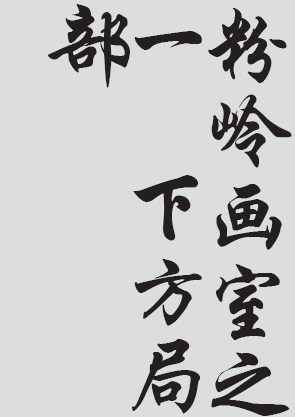 粉岭画室之
一 下方局
部